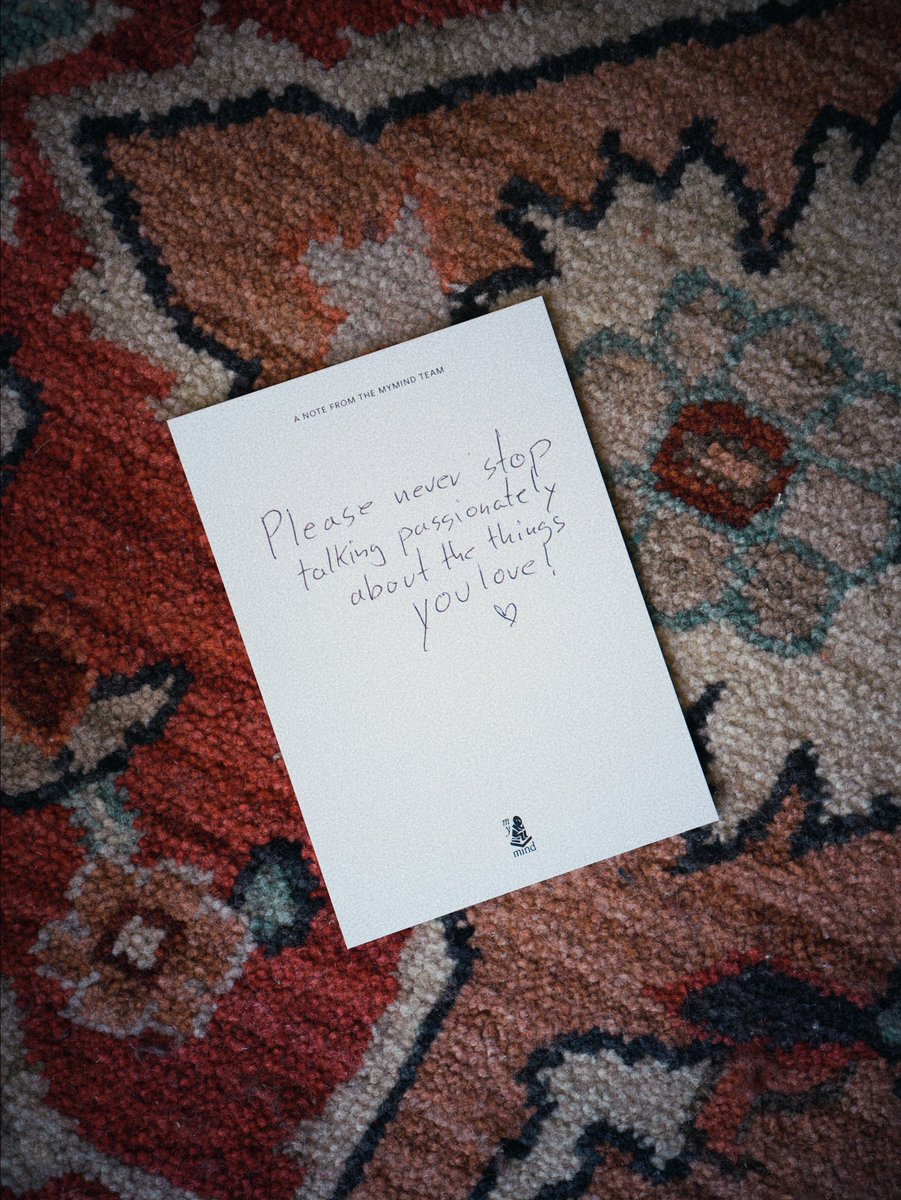 A NOTE FROM THE MYMIND TEAM
Please never stop
talking passionately
about the things
you love!
my
mind